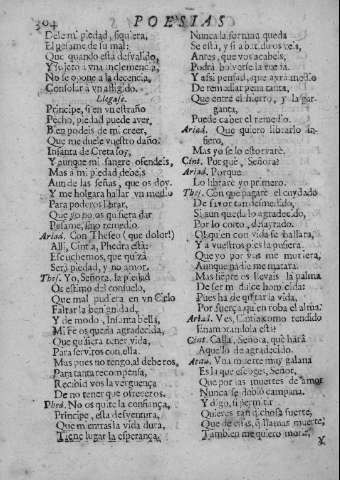 304 POESIAS
Dele mi piedad, siquiera,
El pesame de su mal:
Que quando està desvalido,
Y sujeto à vna inclemencia,
No se opone a la decencia,
Consolar à vn afligido.
Llegase.
Principe, si en vn estraño
Pecho, piedad puede aver,
Bien podeis de mi creer,
Que me duele vuestro daño.
Infanta de Creta soy,
Y aunque mi sangre ofendeis,
Mas à mi piedad debeis
Aun de las señas, que os doy.
Y me holgara hallar vn medio
Para poderos librar,
Que yo no os quisiera dar
Pesame, sino remedio.
Ariad. Con Theseo (que dolor!)
Alli, Cintia, Phedra està:
Escuchemos, que quizà
Serà piedad, y no amor.
Thes. Yo, Señora, la piedad
Os estimo del consuelo,
Que mal pudiera en vn Cielo
Faltar la benignidad,
Y de modo, Infanta bella,
Mi Fè os queda agradecida,
Que quisiera tener vida,
Para serviros con ella.
Mas pues no tengo, al deberos,
Para tanta recompensa,
Recibid vos la verguença
De no tener que ofreceros.
Phed. No os quite la confiança,
Principe, esta desventura,
Que mientras la vida dura,
Tiene lugar la esperança.
Nunca la fortuna queda
Se està, y si à
Antes, que vos acabeis,
Podrà bolverse la rueda.
Y assi pensad, que avrà medio
De remediar pena tanta,
Que entre el hierro, y la garganta,
Puede caber el remedio.
Ariad. Que quiero librarlo infiero,
Mas yo se lo estorvarè.
Cint. Porquè, Señora?
Ariad. Porque
Lo librarè yo primero.
Thes. Con que pagarè el cuydado
De favor tan desmedido,
Si aun quedo lo agradecido,
Por lo corto, desayrado.
O! quien con vida se hallara,
Y à vuestros pies la pusiera.
Que yo por vos me muriera,
Aunque nadie me matara.
Mas siempre os llevais la palma
De ser mi dulce homicida:
Pues ha de quitar la vida,
Por fuerça quien roba el alma.
Ariad. Vès, Cintia, como rendido
Enamorandola està?
Cint. Calla, Señora, què harà
Aquello de agradecido.
Atun. Vna muerte muy galana
Es la que escoges, Señor,
Que por las muertes de amor
Nunca se doblò campana.
Y digo, si permitir
Quieres tan dichosa suerte,
Que de essas, que llamas muerte,
Tambien me quiero morir.